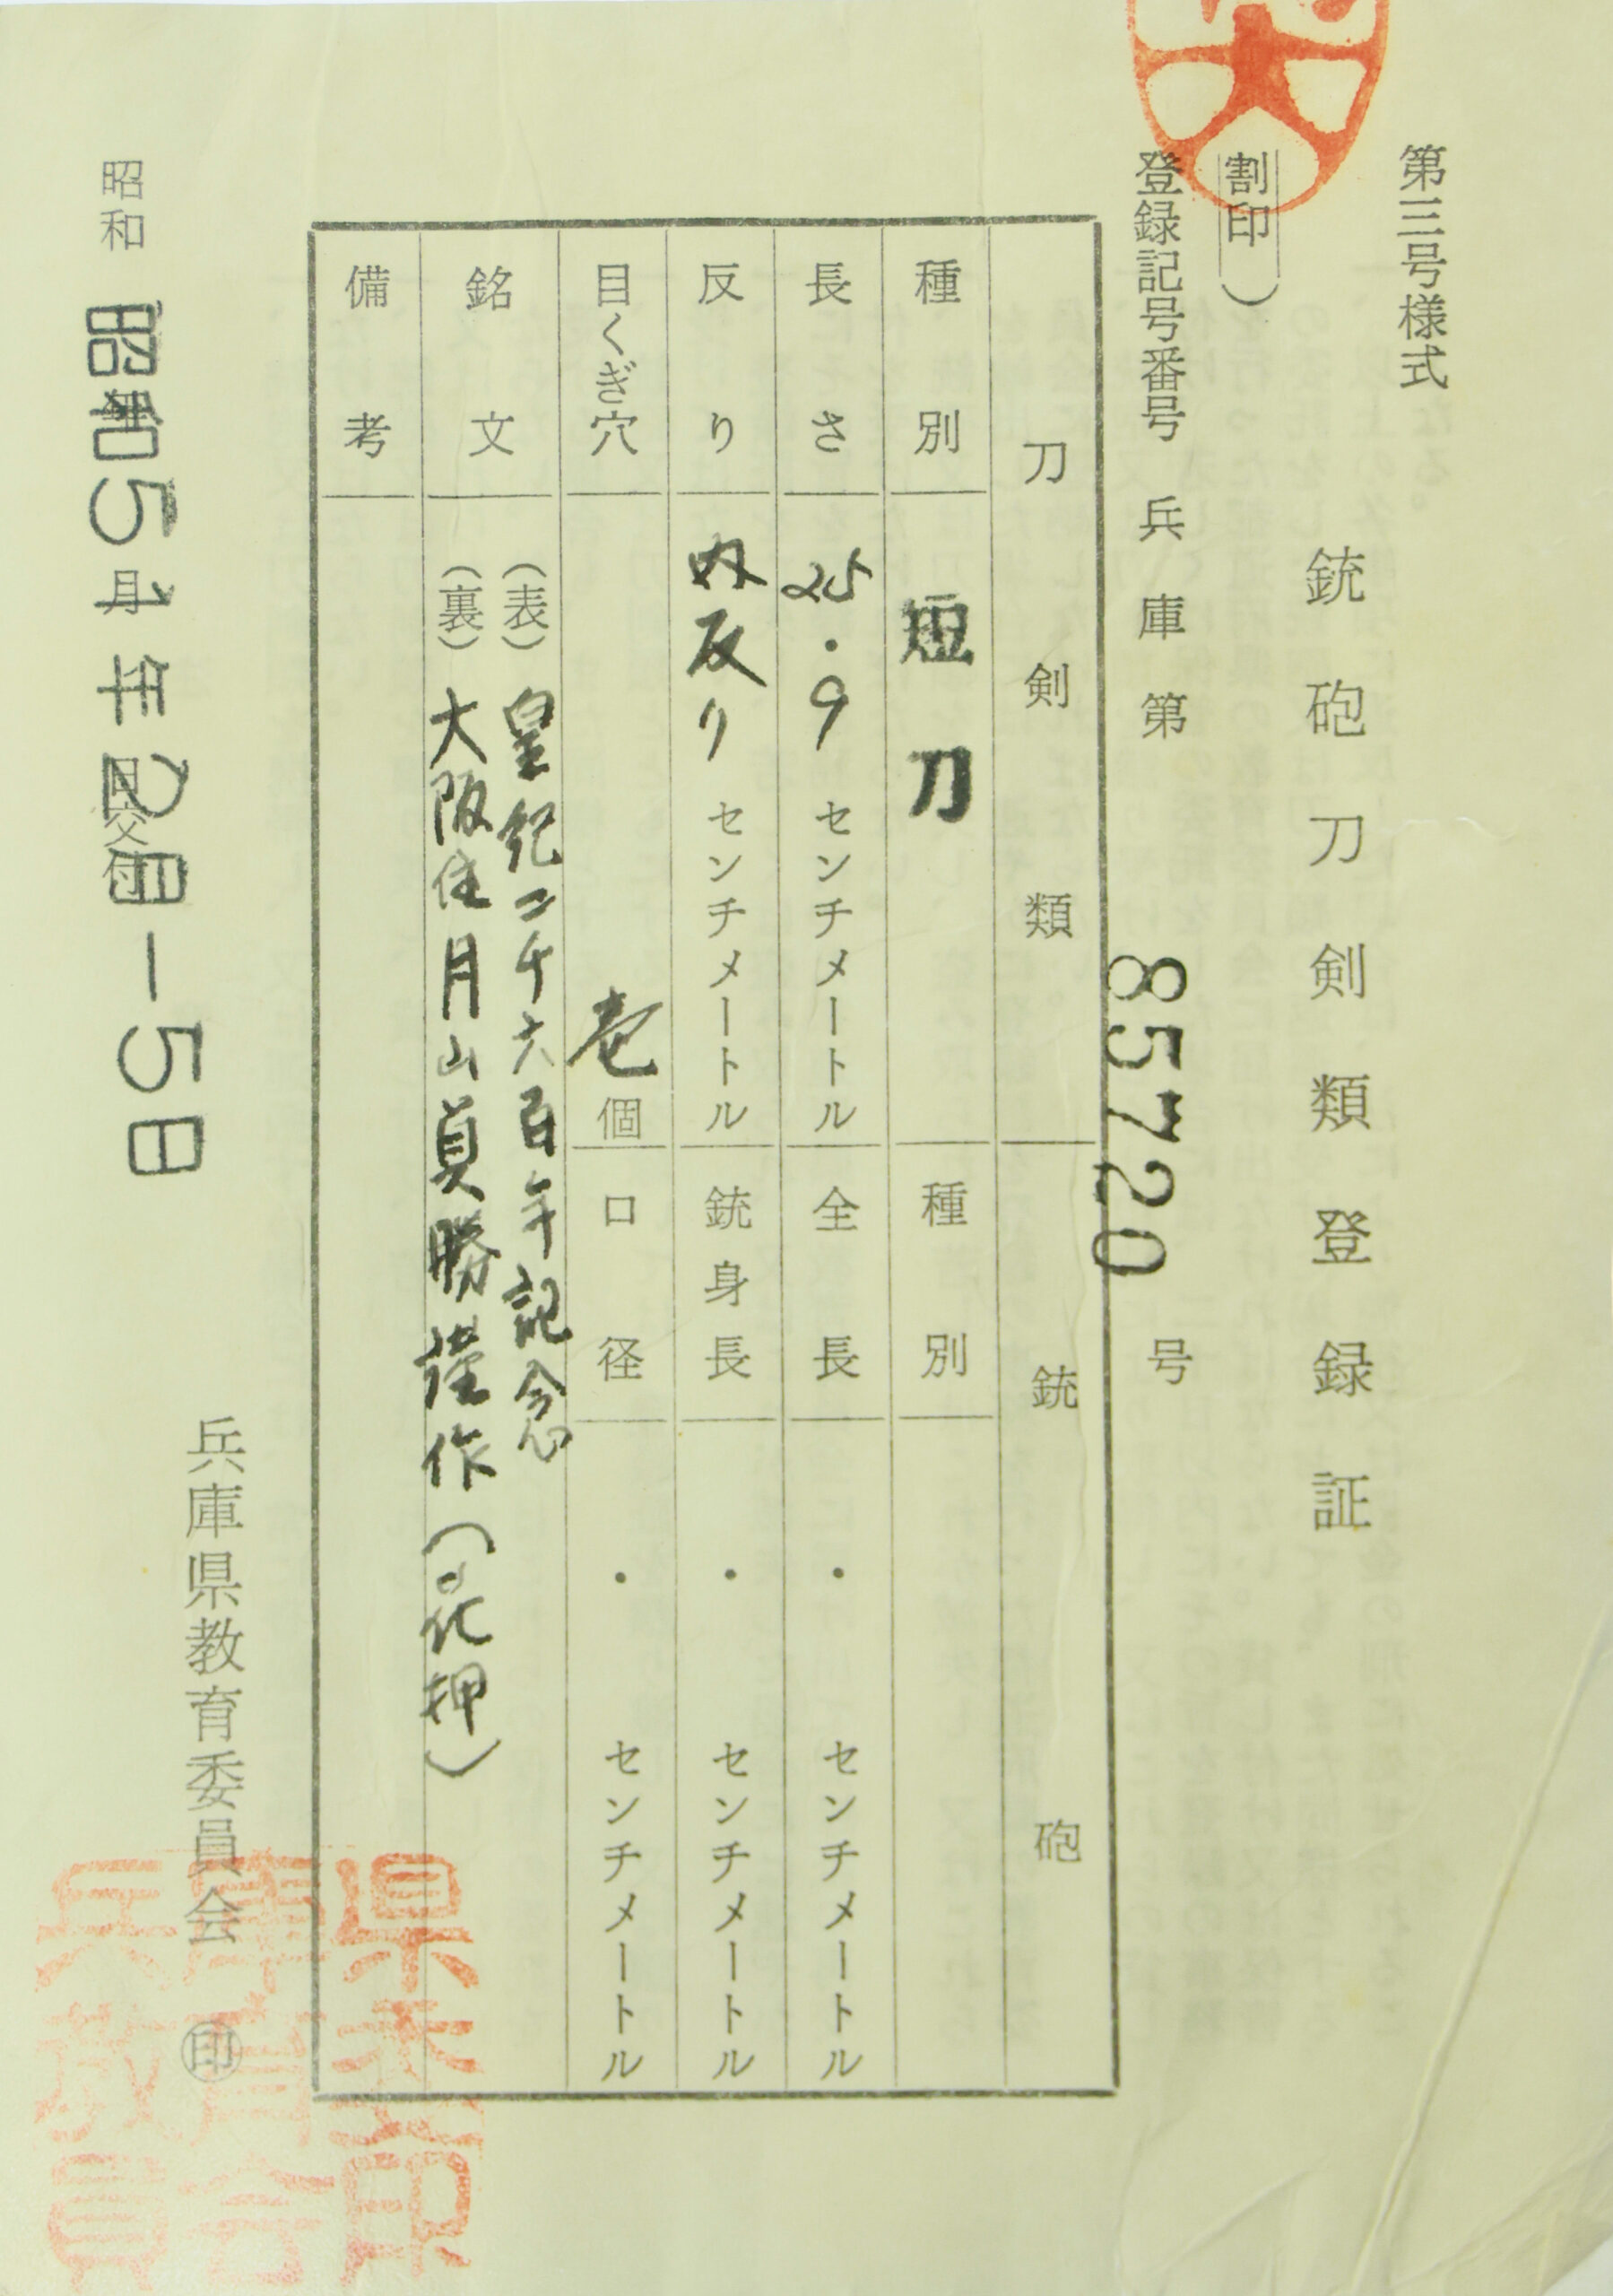 第三号様式
銃砲刀剣類登録証
(割印)
登録記号番号 兵庫第 85720 号
刀剣類 銃砲
種別 短刀 種別
長さ 25.9 センチメートル 全長 ・ センチメートル
反り 内反り センチメートル 銃身長 ・ センチメートル
目くぎ穴 壱個 口径 ・ センチメートル
銘文 (表) 皇紀二千六百年記念
(裏) 大阪住月山貞勝謹作(花押)
備考
昭和 年 月 日交付
昭和54年2月-5日
兵庫県教育委員会 印
兵庫県教育委員会印